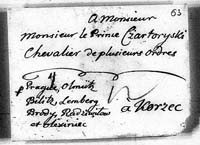 63
A Monsieur
Monsieur le Prince Czartoryski
Chevalier de plusieurs ordres
p Prague, Olmitz
Bilitz, Lemberg
Brody, Radziwilow
et Olexiniec
à Korzec